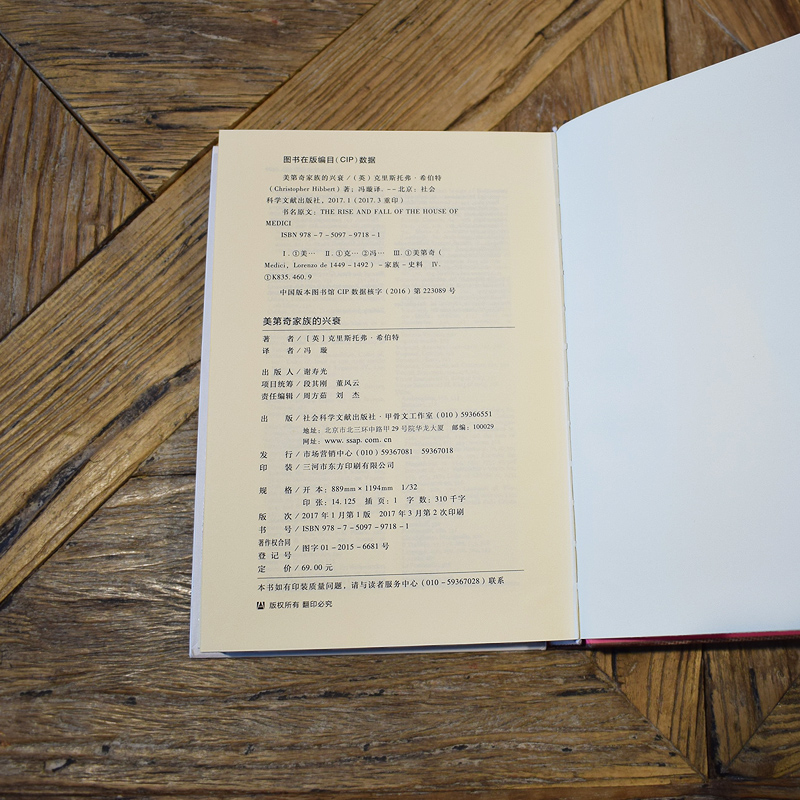 图书在版编目(CIP)数据
美第奇家族的兴衰/(英)克里斯托弗·希伯特
(Christopher Hibbert)著;冯璇译. --北京:社会
科学文献出版社,2017.1(2017.3重印)
书名原文:THE RISE AND FALL OF THE HOUSE OF
MEDICI
ISBN 978-7-5097-9718-1
Ⅰ.①美… Ⅱ.①克…②冯… Ⅲ.①美第奇(
Medici, Lorenzo de 1449-1492)-家族-史料 Ⅳ.
①K835.460.9
中国版本图书馆CIP数据核字(2016)第223089号
美第奇家族的兴衰
著 者/[英]克里斯托弗·希伯特
译 者/冯 璇
出版人/谢寿光
项目统筹/段其刚 董风云
责任编辑/周方茹 刘 杰
出 版/社会科学文献出版社·甲骨文工作室(010)59366551
地址:北京市北三环中路甲29号院华龙大厦 邮编:100029
网址:www.ssap.com.cn
发 行/市场营销中心(010)59367081 59367018
印 装/三河市东方印刷有限公司
规 格/开 本:889mm×1194mm 1/32
印 张:14.125 插 页:1 字 数:310千字
版 次/2017年1月第1版 2017年3月第2次印刷
书 号/ISBN 978-7-5097-9718-1
著作权合同
登 记 号/图字01-2015-6681号
定 价/69.00元
本书如有印装质量问题,请与读者服务中心(010-59367028)联系
版权所有 翻印必究